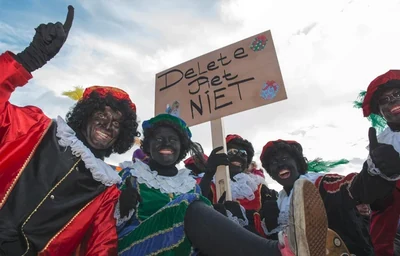 Delete
Piet
NIET